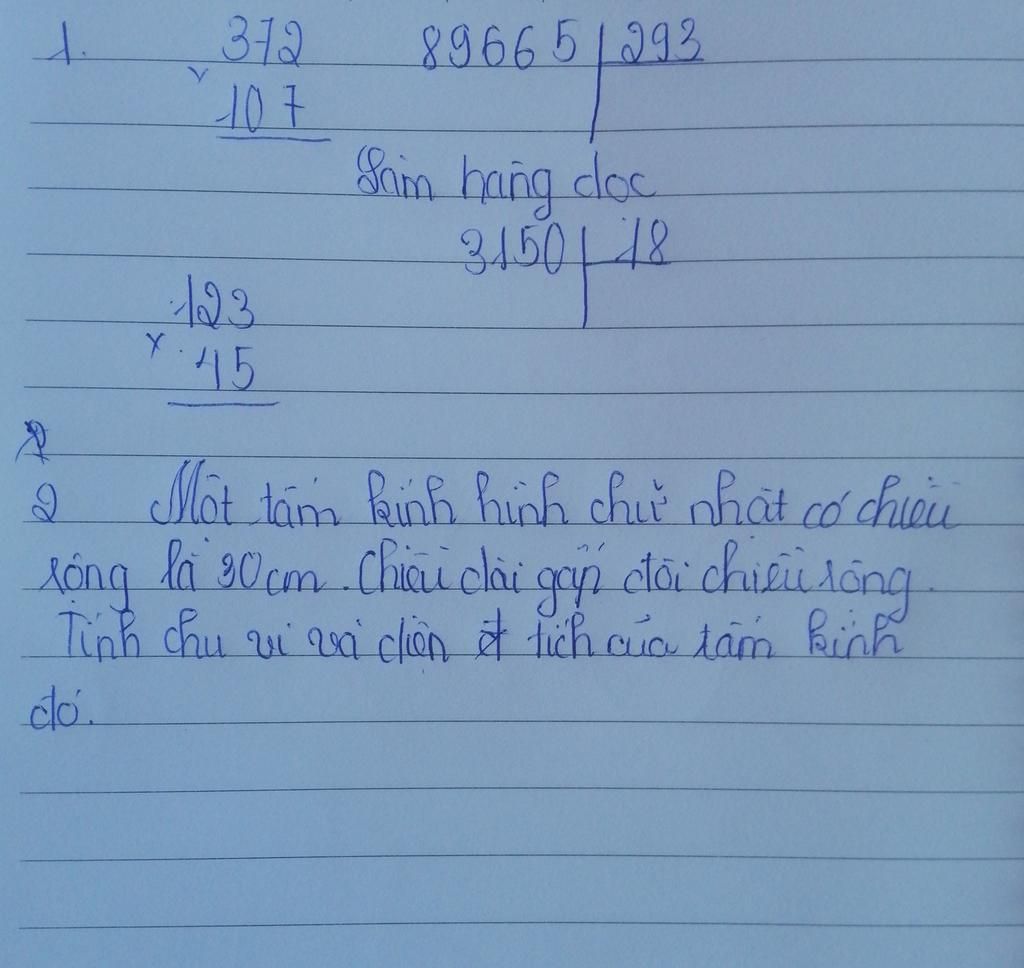 1. 372 89665 | 293
x 107
Làm hàng dọc
3150 | 18
123
x 45
2 Một tấm kính hình chữ nhật có chiều
rộng là 30cm. Chiều dài gấp đôi chiều rộng.
Tính chu vi và diện tích của tấm kính
đó.